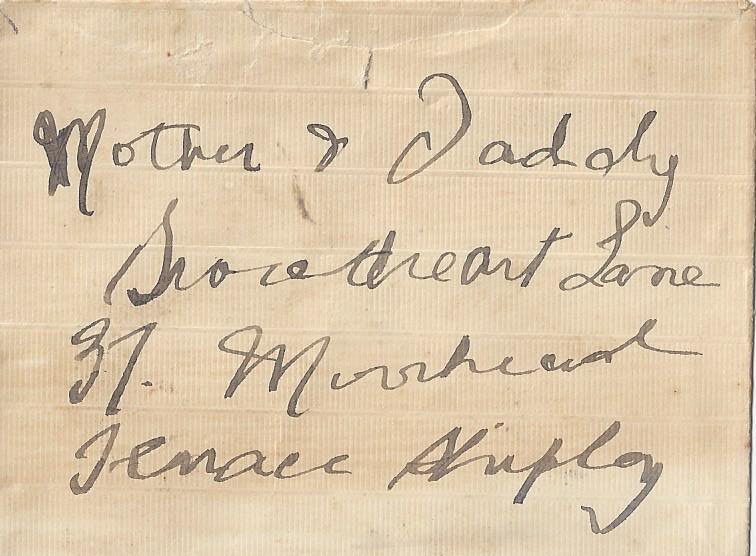 Mother & Daddy
Sweetheart Lane
37. Moorhead
Terrace Shipley